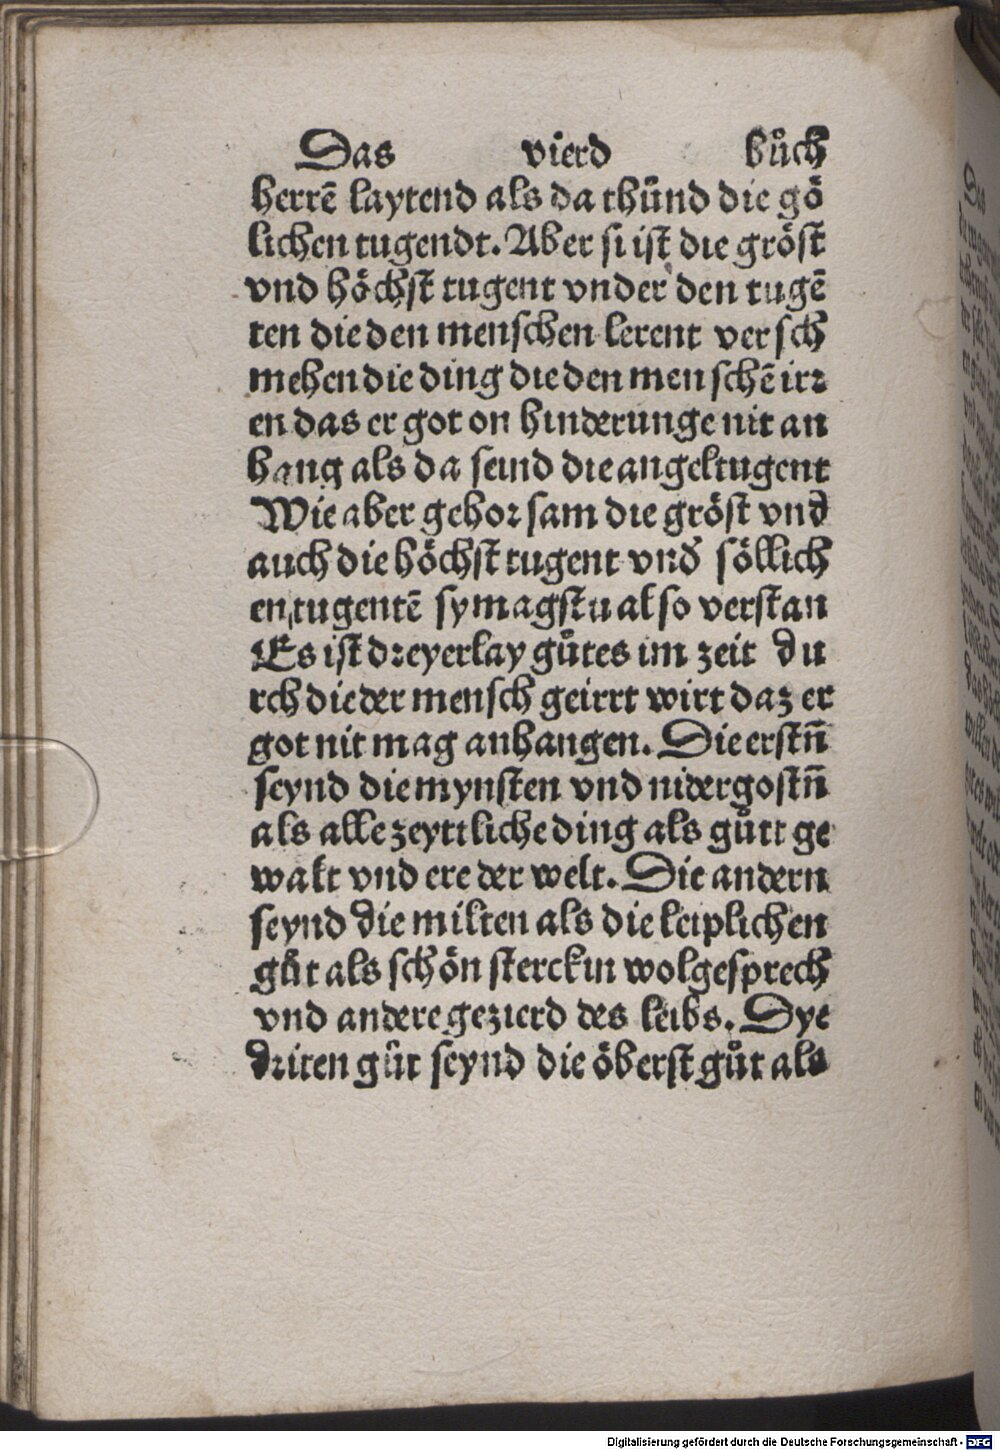 Das vierd bůch
herrē laytend als da thůnd die gö
lichen tugendt. Aber si ist die gröst
vnd höchst tugent vnder den tugē
ten die den menschen lerent versch
mehen die ding die den menschē irꝛ
en das er got on hinderunge nit an
hang als da seind die angeltugent
Wie aber gehoꝛsam die gröst vnd
auch die höchst tugent vnd̕ söllich
en tugentē sy magstu also verstan
Es ist dꝛeyerlay gůtes im zeit du
rch die der mensch geirrt wirt daz er
got nit mag anhangen. Die erstn̄
seynd die mynsten vnd nidergostn̄
als alle zeyttliche ding als gůtt ge
wakt vnd ere der welt. Die andern
seynd die milten als die leiplichen
gůt als schön sterckin wolgesprech
vnd andere gezierd des leibs. Dye
dꝛiten gůt seynd die öberst gůt als
Digitalisierung gefördert durch die Deutsche Forschungsgemeinschaft - DFG